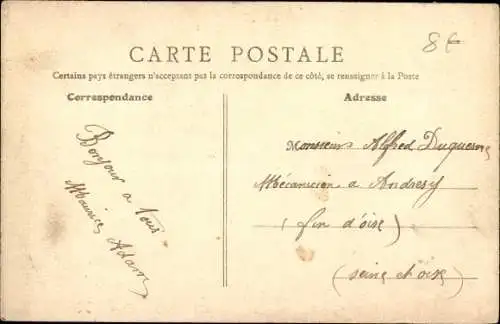 8€
CARTE POSTALE
Certains pays étrangers n'acceptant pas la correspondance de ce côté, se renseigner à la Poste
Correspondance
Adresse
Bonjour a Vous
Maurice Adam
Monsieur Alfred Duquesne
Mécanicien a Andresy
(fin d'oise)
(seine et oise)